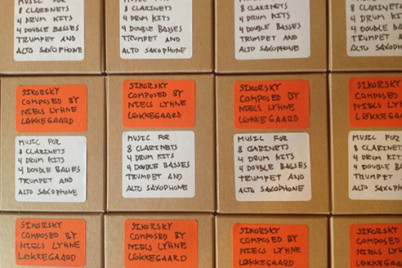 MUSIC FOR
8 CLARINETS
4 DRUM KITS
4 DOUBLE BASSES
TRUMPET AND
ALTO SAXOPHONE
MUSIC FOR
8 CLARINETS
4 DRUM KITS
4 DOUBLE BASSES
TRUMPET AND
ALTO SAXOPHONE
MUSIC FOR
8 CLARINETS
4 DRUM KITS
4 DOUBLE BASSES
TRUMPET AND
ALTO SAXOPHONE
8 CLARINETS
4 DRUM
4 DOUBLE
TRUMPET
ALTO
SIKORSKY
COMPOSED BY
NIELS LYHNE
LØKKEGAARD
MUSIC FOR
8 CLARINETS
4 DRUM KITS
4 DOUBLE BASSES
TRUMPET AND
ALTO SAXOPHONE
SIKORSKY
COMPOSED BY
NIELS LYHNE
LØKKEGAARD
MUSIC FOR
8 CLARINETS
4 DRUM KITS
4 DOUBLE BASSES
TRUMPET AND
ALTO SAXOPHONE
SIKORSKY
COMPOSED BY
NIELS LYHNE
LØKKEGAARD
MUSIC FOR
8 CLARINETS
4 DRUM KITS
4 DOUBLE BASSES
TRUMPET AND
ALTO SAXOPHONE
SIKORSKY
COMPOSED
NIELS
MUSIC FOR
8 CLARINETS
4 DRUM
4 DOUBLE
TRUMPET
ALTO
SIKORSKY
COMPOSED BY
NIELS LYHNE
LØKKEGAARD
SIKORSKY
COMPOSED BY
NIELS LYHNE
LØKKEGAARD
SIKORSKY
COMPOSED BY
NIELS LYHNE
LØKKEGAARD
SIKORSKY
COMPOSED
NIELS